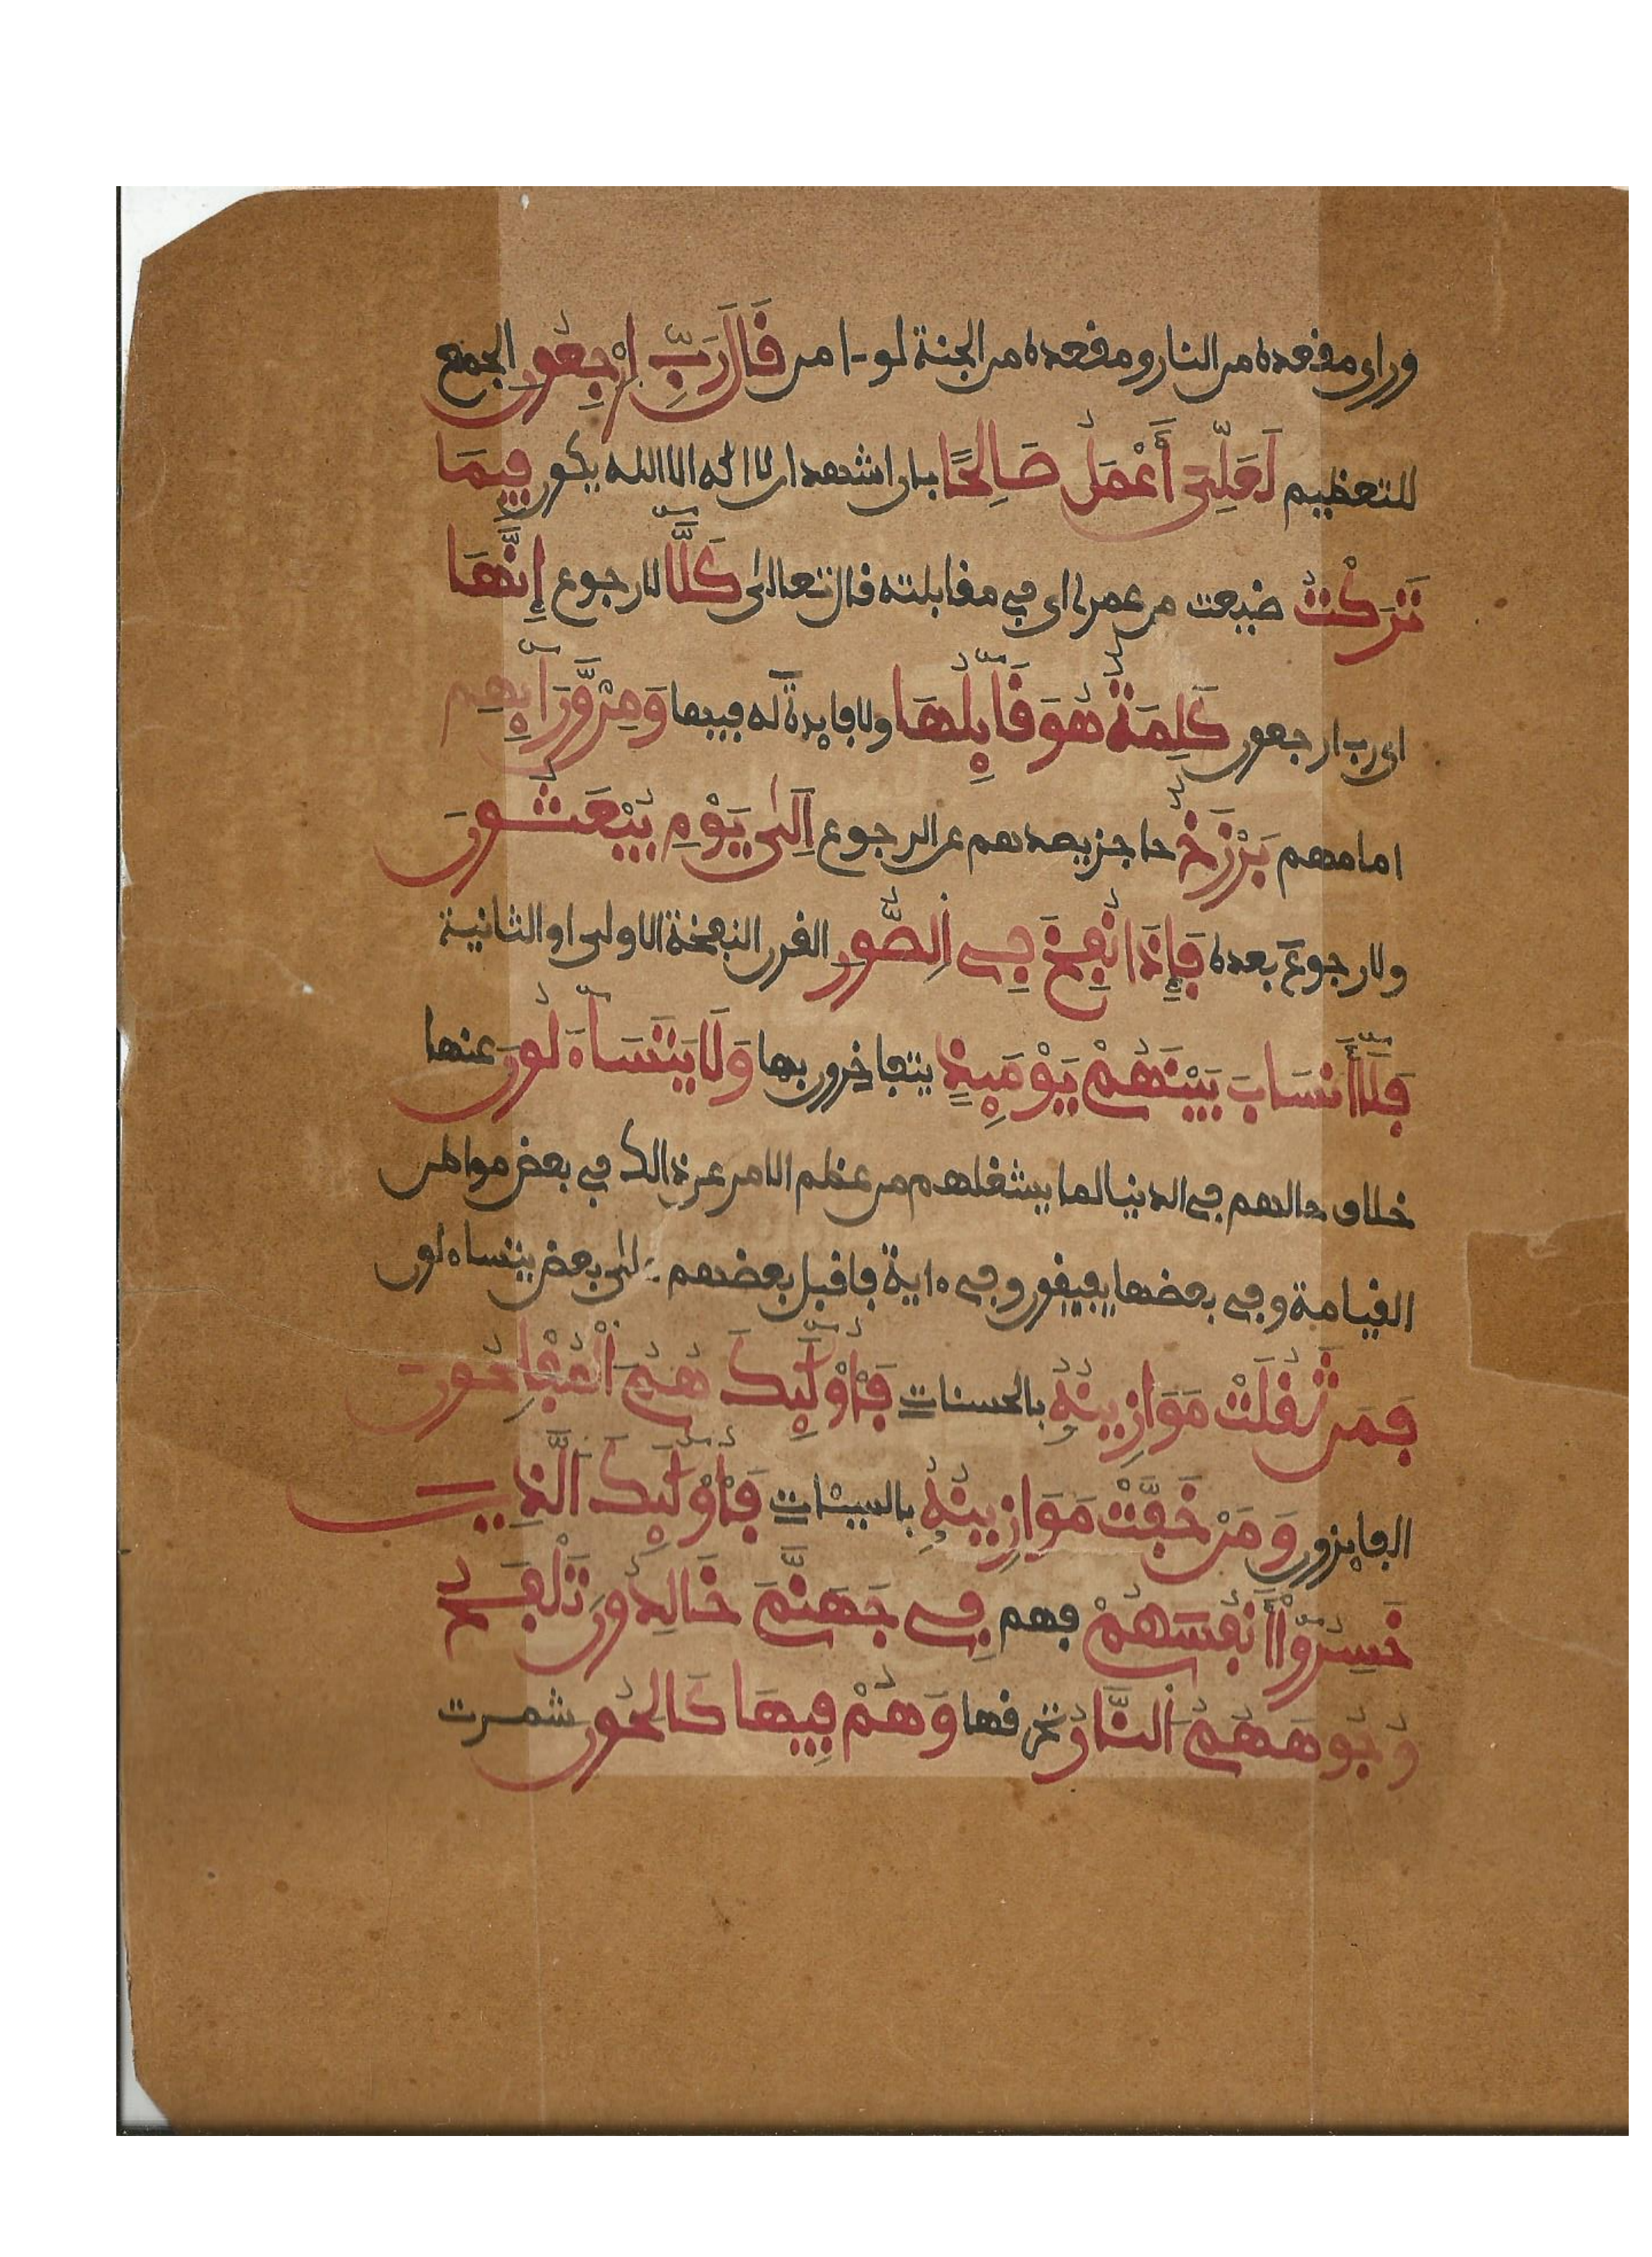 ورأى مقعده من النار ومقعده من الجنة لو ءامن قَالَ رَبِّ اِرْجِعُونِ الجمع
للتعظيم لَعَلِّىَ أَعْمَلُ صَالِحًا بان اشهد ان لا اله الا الله يكون فِيمَا
تَرَكْتُ ضيعت من عمرى اى في مقابلته قال تعالى كَلَّا لا رجوع إِنَّهَا
اى رب ارجعون كَلِمَةٌ هُوَ قَآئِلُهَا ولا فايدة له فيها وَمِنْ وَّرَآئِهِم
امامهم بَرْزَخٌ حاجز يصدهم عن الرجوع اِلَىٰ يَوْمِ يُبْعَثُونَ
ولا رجوع بعده فَإِذَا نُفِخَ فِي اِلصُّورِ القرن النفخة الاولى او الثانية
فَلَآ أَنسَابَ بَيْنَهُمْ يَوْمَئِذٍ يتفاخرون بها وَلَا يَتَسَآءَلُونَ عنها
خلاف حالهم في الدنيا لما يشغلهم من عظم الامر عن ذالك في بعض مواطن
القيامة وفي بعضها يفيقون وفي ءاية فاقبل بعضهم على بعض يتساءلون
فَمَن ثَقُلَتْ مَوَازِينُهُ بالحسنات فَأُوْلَٰئِكَ هُمُ اُلْمُفْلِحُونَ
الفايزون وَمَنْ خَفَّتْ مَوَازِينُهُ بالسيئات فَأُوْلَٰئِكَ اَلَّذِينَ
خَسِرُوٓاْ أَنفُسَهُمْ فهم فِي جَهَنَّمَ خَالِدُونَ تَلْفَحُ
وُجُوهَهُمُ اُلنَّارُ تحرقها وَهُمْ فِيهَا كَالِحُونَ شمرت